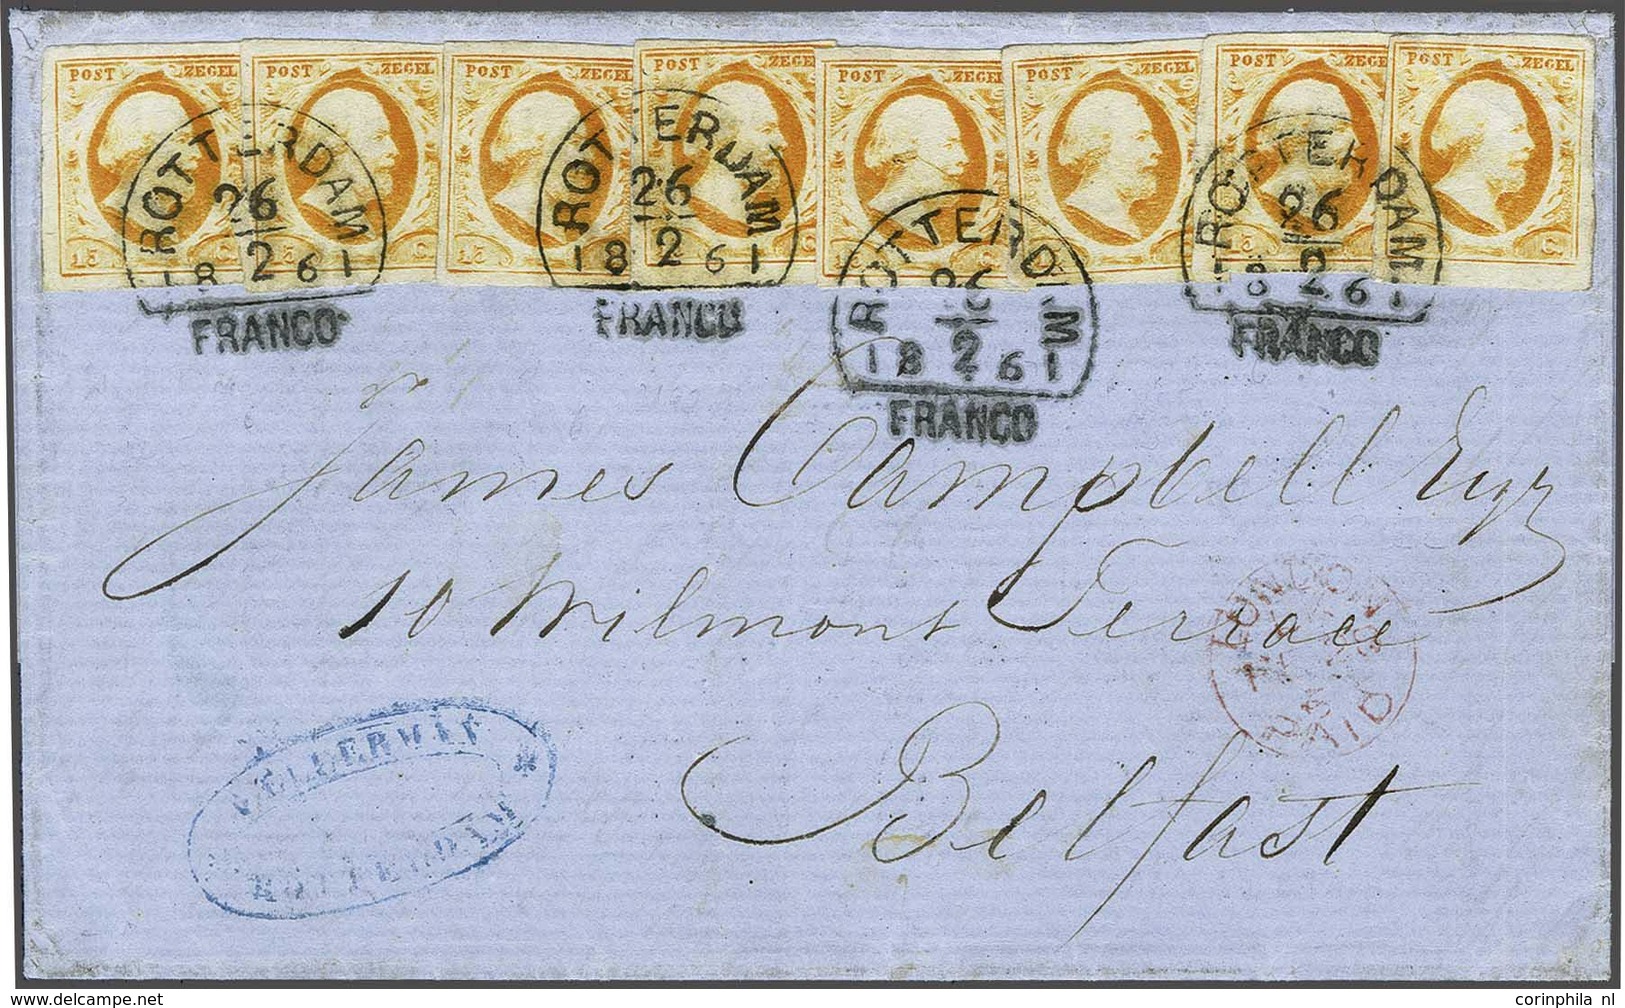 POST ZEGEL POST ZEGEL POST ZEGEL POST ZEGEL POST ZEGEL POST ZEGEL POST ZEGEL POST ZEGEL
15 C. 15 C. 15 15 15 C.
ROTTERDAM
26
2
1861
FRANCO
ROTTERDAM
26
2
1861
FRANCO
ROTTERDAM
26
2
1861
FRANCO
ROTTERDAM
26
2
1861
FRANCO
James Campbell Esqr
10 Wilmont Terrace
Belfast
LONDON
PAID
ROTTERDAM
corinphila nl